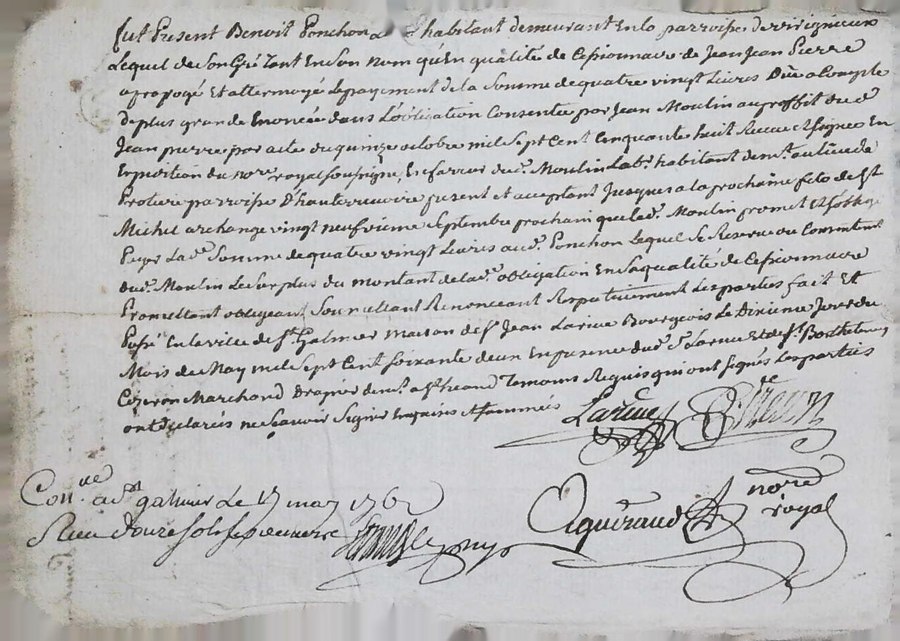 fut Present Benoit Ponchon La[r] habitant demeurant en la parroisse de virigneux
Lequel de son Gré Tant En son nom qu'En qualité de Cessionnaire de Jean Jean Pierre
a prorogé Et attermoyé Le payement de la Somme de quatre vingt Livres Düe a Compte
de plus grande Enoncée dans L'obligation Consentie par Jean Moulin au proffit dud.
Jean pierre par acte du quinze octobre mil Sept Cent Cinquante huit Recue Et signée En
Expedition du no.re royal soussigne, En faveur dud. Moulin Lab.r habitant dem.t au lieu de
parroisse D'hauterivoire present et acceptant Jusques a la prochaine fete de St
Michel archange vingt neufvieme Septembre prochain que led. Moulin promet Et s'oblige
Payer La d. Somme de quatre vingt Livres aud. Ponchon Lequel Se Reserve
dud. Moulin Le Surplus du montant de lad. obligation En Sa qualité de Cessionnaire
Promettant obligeant Soumettant Renonceant Respectivement Les parties fait Et
Passé En la ville de St Galmier maison de Sr Jean Larive Bourgeois Le Dixieme Jour du
Mois de May mil Sept Cent Soixante deux En presence dud. Sr Larive Et de Sr Barthelemy
Marchand Drapier dem.t a St heand Temoins Requis qui ont signés Les parties
ont declarés ne Scavoir Signer Enquises Et Sommées
Larive
Con.lle a St galmier Le 17 may 1762
Recu douze sols
no.re
royal